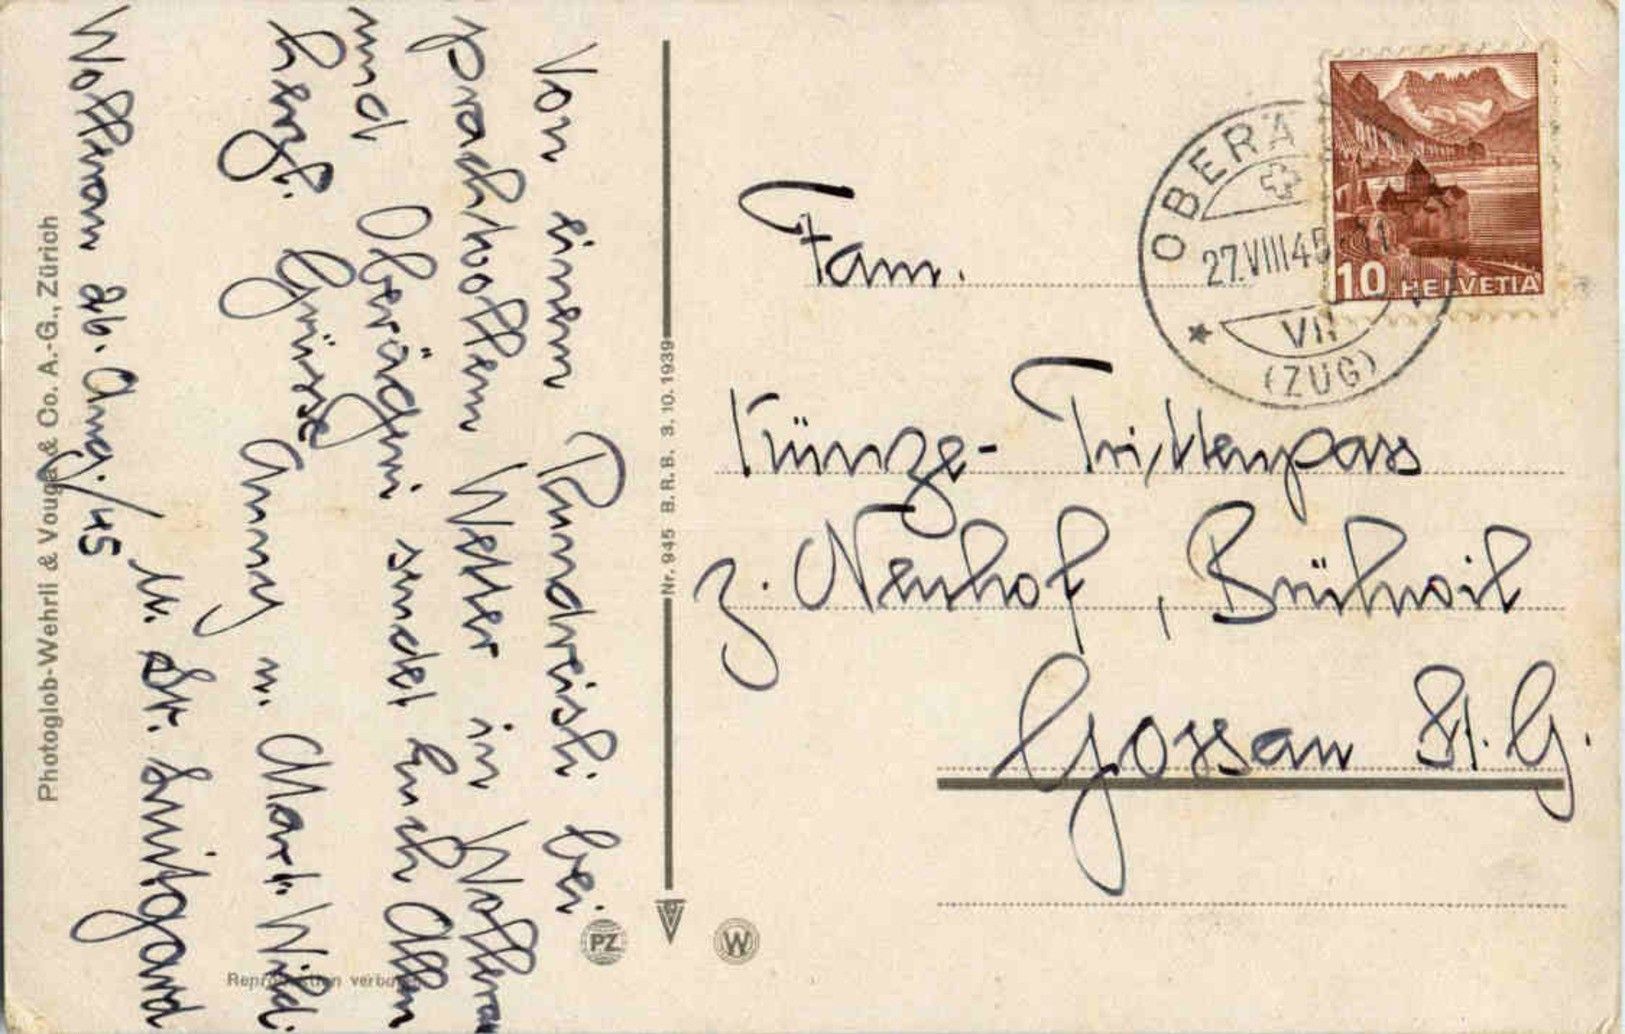 Von einem Rundreisli bei
prachtvollem Wetter in Wollerau
und Oberägeri sendet Euch Allen
herzl. Grüsse
Anny u. Mart. Wild.
u. Sr. Luitgard
Wollerau 26. Aug./45
Photoglob-Wehrli & Vouga & Co. A.-G., Zürich
Reproduktion verboten
Nr. 945 B. R. B. 3. 10. 1939
PZ
W
OBERÄ
27.VIII 45
VII
(ZUG)
10 HELVETIA
Fam.
Künze-Trittenpass
z. Neuhof, Brühwil
Gossau St. G.